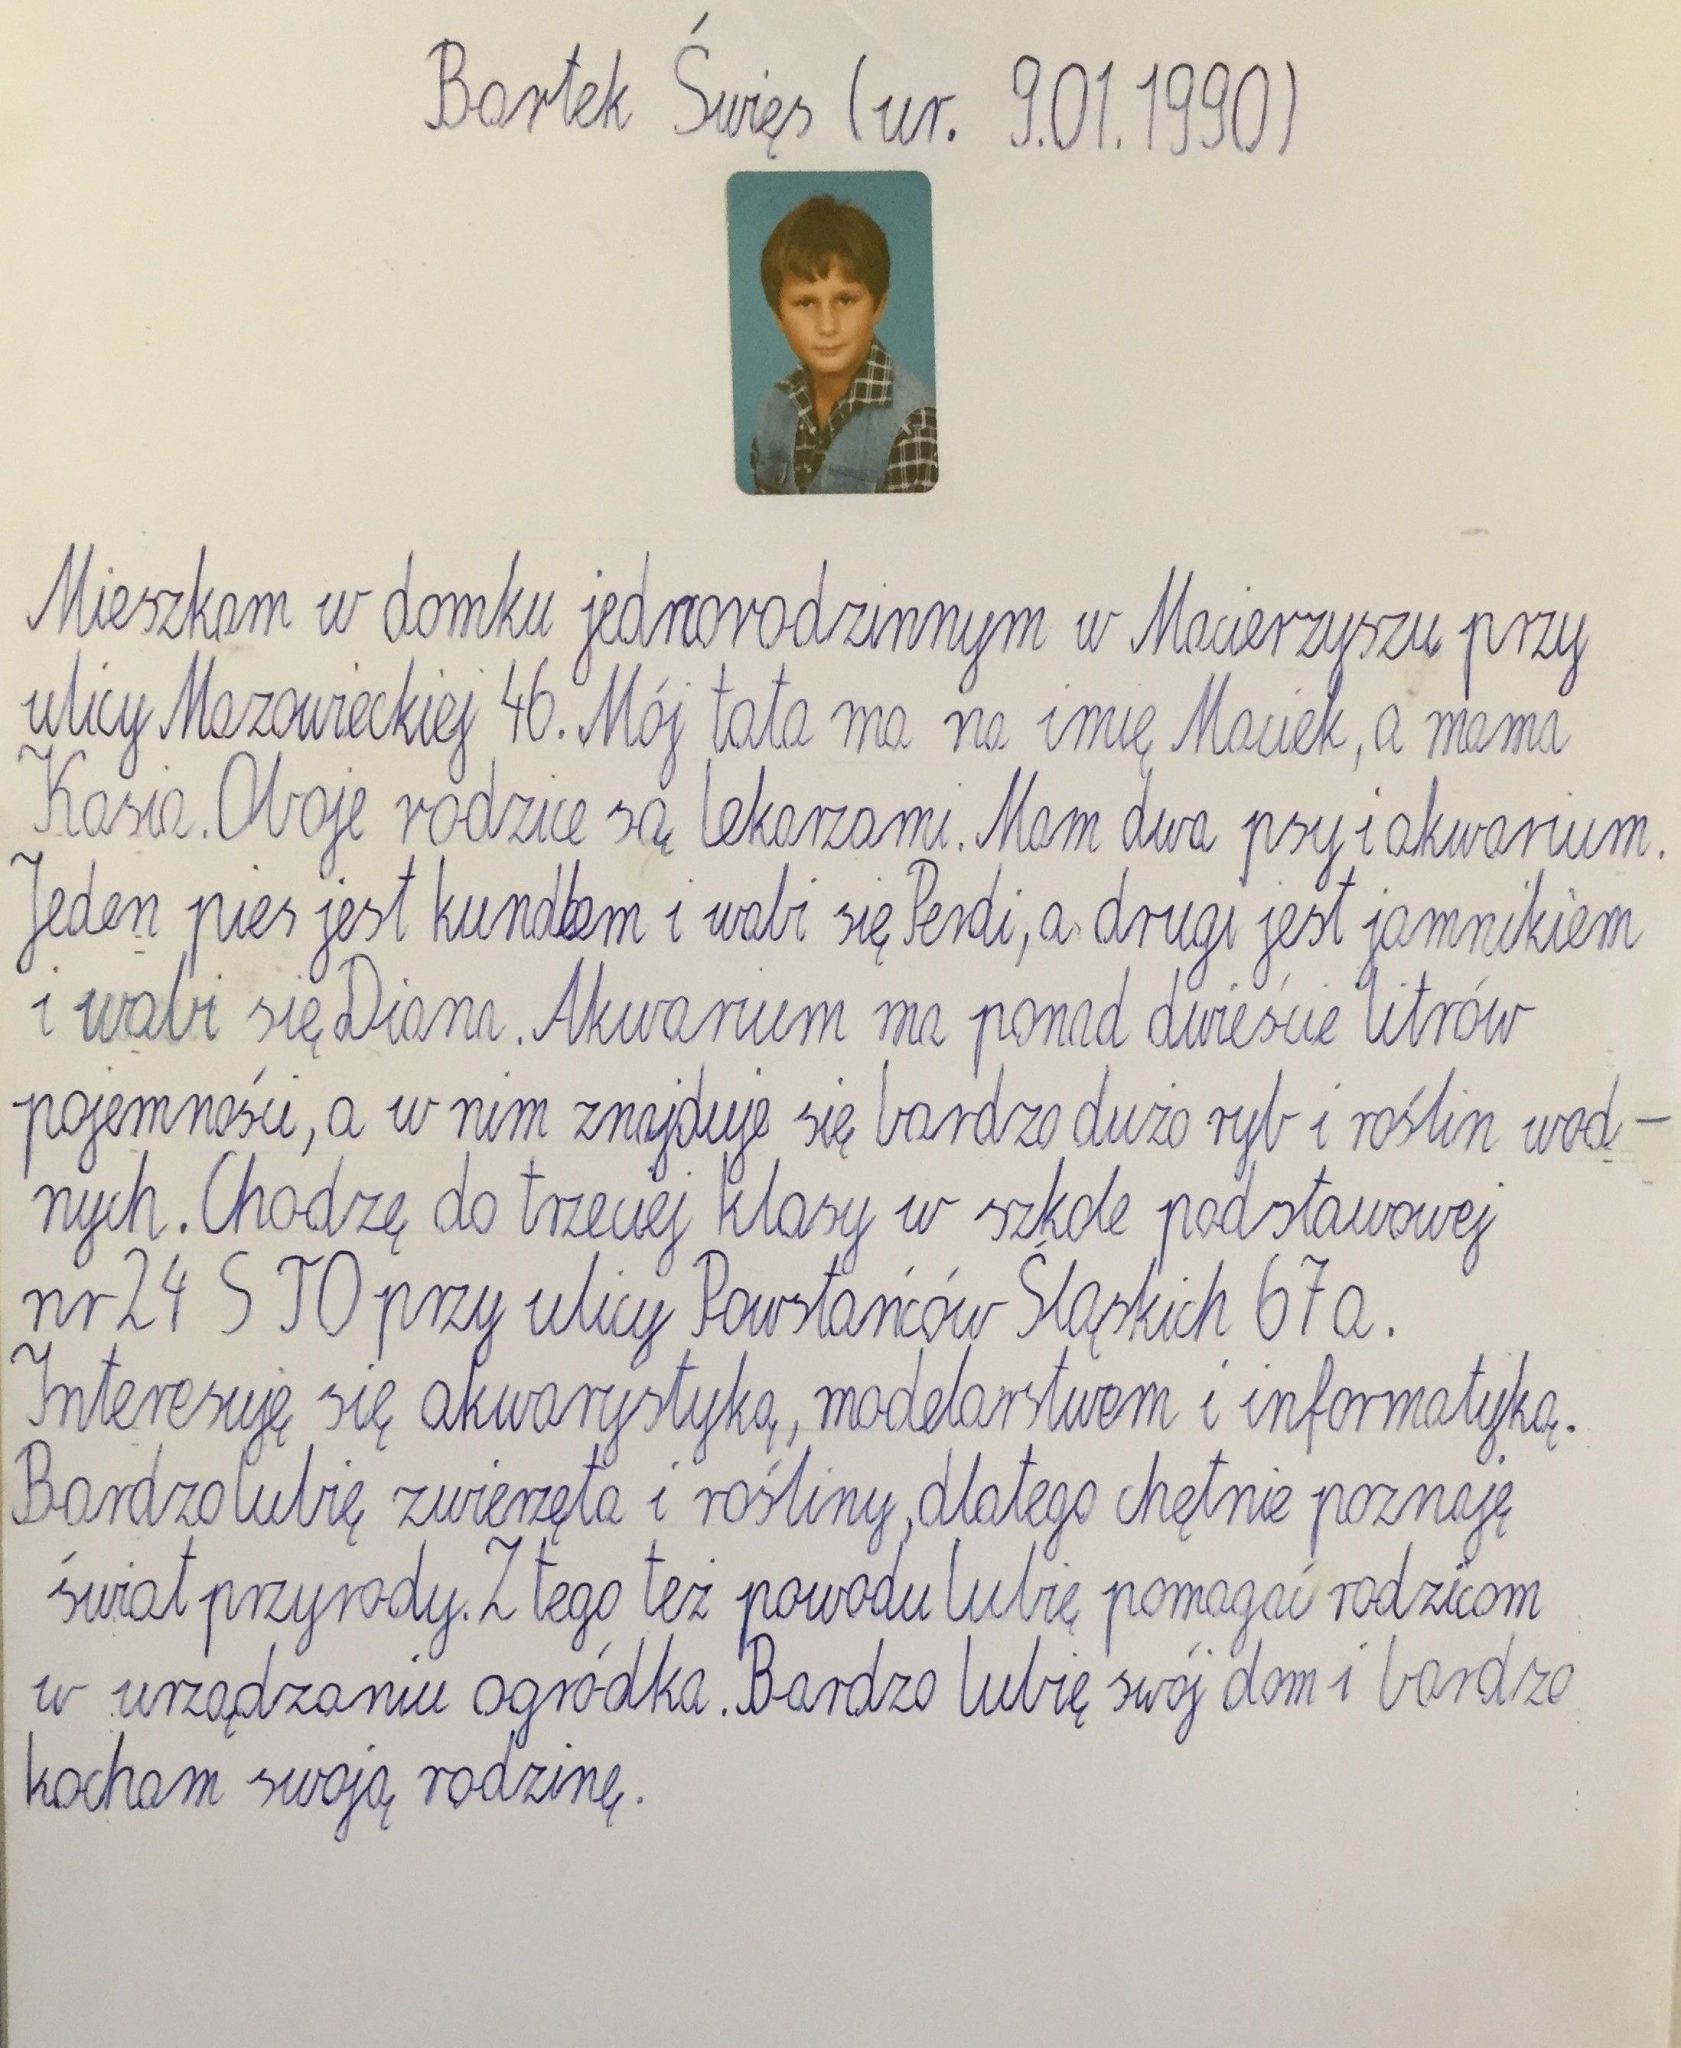 Bartek Święs (ur. 9.01.1990)
Mieszkam w domku jednorodzinnym w Macierzyszu przy
ulicy Mazowieckiej 46. Mój tata ma na imię Maciek, a mama
Kasia. Oboje rodzice są lekarzami. Mam dwa psy i akwarium.
Jeden pies jest kundlem i wabi się Perdi, a drugi jest jamnikiem
i wabi się Diana. Akwarium ma ponad dwieście litrów
pojemności, a w nim znajduje się bardzo dużo ryb i roślin wod-
nych. Chodzę do trzeciej klasy w szkole podstawowej
nr 24 STO przy ulicy Powstańców Śląskich 67a.
Interesuję się akwarystyką, modelarstwem i informatyką.
Bardzo lubię zwierzęta i rośliny, dlatego chętnie poznaję
świat przyrody. Z tego też powodu lubię pomagać rodzicom
w urządzaniu ogródka. Bardzo lubię swój dom i bardzo
kocham swoją rodzinę.